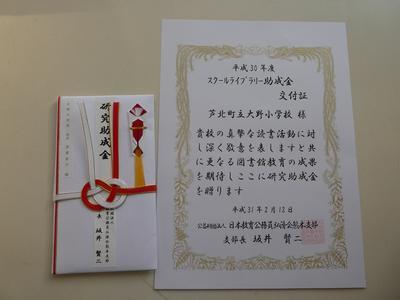 平成30年度
スクールライブラリー助成金
交付証
芦北町立大野小学校 様
貴校の真摯な読書活動に対
し深く敬意を表しますと共
に更なる図書館教育の成果
を期待しここに研究助成金
を贈ります
平成31年2月12日
公益財団法人 日本教育公務員弘済会熊本支部
支部長 坂井 賢二
研究助成金